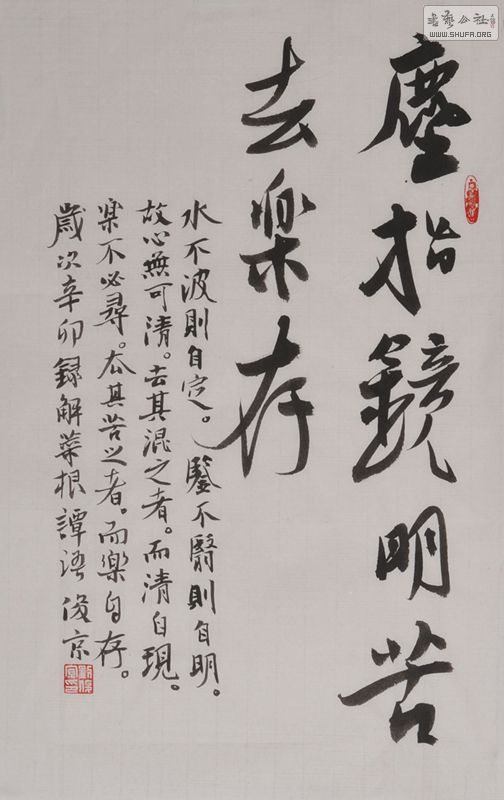 塵指鏡明苦
去樂存
水不波則自定。鑒不翳則自明。
故心無可清。去其混之者。而清自現。
樂不必尋。去其苦之者。而樂自存。
歲次辛卯錄解菜根譚語 俊京
書藝公社
WWW.SHUFA.ORG